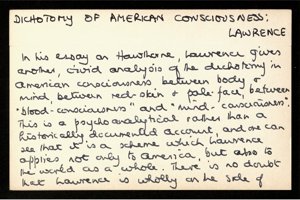 DICHOTOMY OF AMERICAN CONSCIOUSNESS:
LAWRENCE
In his essay on Hawthorne, Lawrence gives
another, vivid analysis of the dichotomy in
american consciousness between body &
mind, between red-skin & pale face, between
"blood-consciousness" and "mind-consciousness".
This is a psychoanalytical rather than a
historically documented account, and we can
see that it is a scheme which Lawrence
applies not only to America, but also to
the world as a whole. There is no doubt
that Lawrence is wholly on the side of